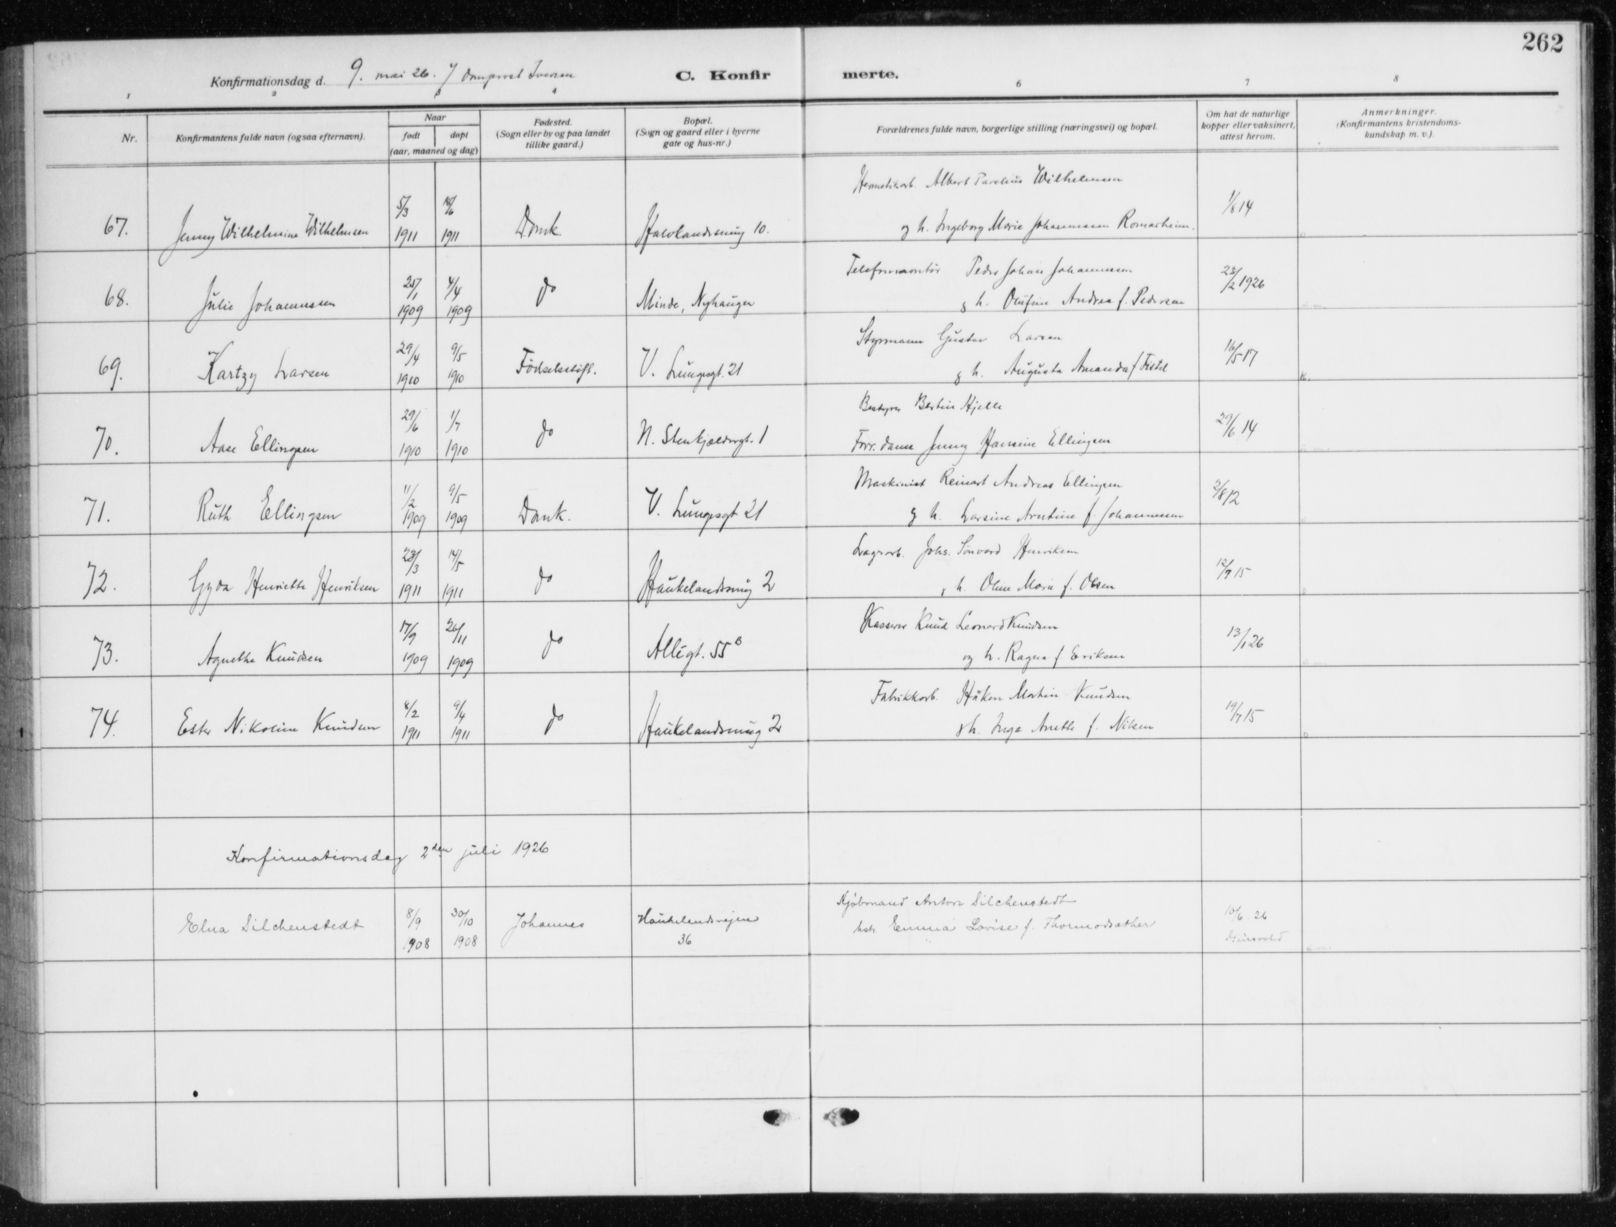 262
Konfirmationsdag d. 9. mai 26. C. Konfirmerte.
1 2 3 4 6 7 8
Nr.
Konfirmantens fulde navn (ogsaa efternavn).
Naar
født
døpt
(aar, maaned og dag)
Fødested.
(Sogn eller by og paa landet
tillike gaard.)
Bopæl.
(Sogn og gaard eller i byerne
gate og hus-nr.)
Forældrenes fulde navn, borgerlige stilling (næringsvei) og bopæl.
Om hat de naturlige
kopper eller vaksinert,
attest herom.
Anmerkninger.
(Konfirmantens kristendoms-
kundskap m. v.).
67. Jenny Wilhelmine Wilhelmsen 5/3 1911 1911 Domk. 10. Albert Wilhelmsen
og h. Ingeborg Marie Johannessen 1/6 14
68. Julie Johannessen 25/1 1909 4/4 1909 do Minde, Nyhaugen Telefonmontør Peder Johan Johannessen
g h. Olufine Andrea f. Pedersen 23/2 1926
69. Larsen 29/4 1910 9/5 1910 Fødselsstift. V. Lungegt. 21 Styrmann Gustav Larsen
g h. Augusta Amanda f. 16/5 17
70. Aase Ellingsen 29/6 1910 1/7 1910 do N. Stenkjeldergt. 1 Bestyrer Bertin Hjelle
Forr.dame Jenny Hansine Ellingsen 29/6 14
71. Ruth Ellingsen 11/2 1909 9/5 1909 Domk. V. Lungegt 21 Maskinist Reinert Andreas Ellingsen
g h. Larsine f. Johannessen 2/8 12
72. Gyda Henriette Henriksen 23/3 1911 14/5 1911 do Haukelandsmug 2 Lagerarb. Johs. Henriksen
g h. Oline Marie f. Olsen 12/7 15
73. Agnethe Knudsen 17/9 1909 26/11 1909 do Allégt. 55 B Kasserer Knud Leonard Knudsen
og h. Ragna f. Eriksen 13/1 26
74. Ester Nikoline Knudsen 8/2 1911 9/4 1911 do Haukelandsmug 2 Fabrikkarb. Håkon Martin Knudsen
g h. Inga Anette f. Nilsen 19/7 15
Konfirmationsdag 2den juli 1926
Elna Dilchenstedt 8/9 1908 30/10 1908 Johannes Haukelandsveien
36
Kjøbmand Anton Dilchenstedt
hstr. Emma Lovise f. Thormodsæther
10/6 26